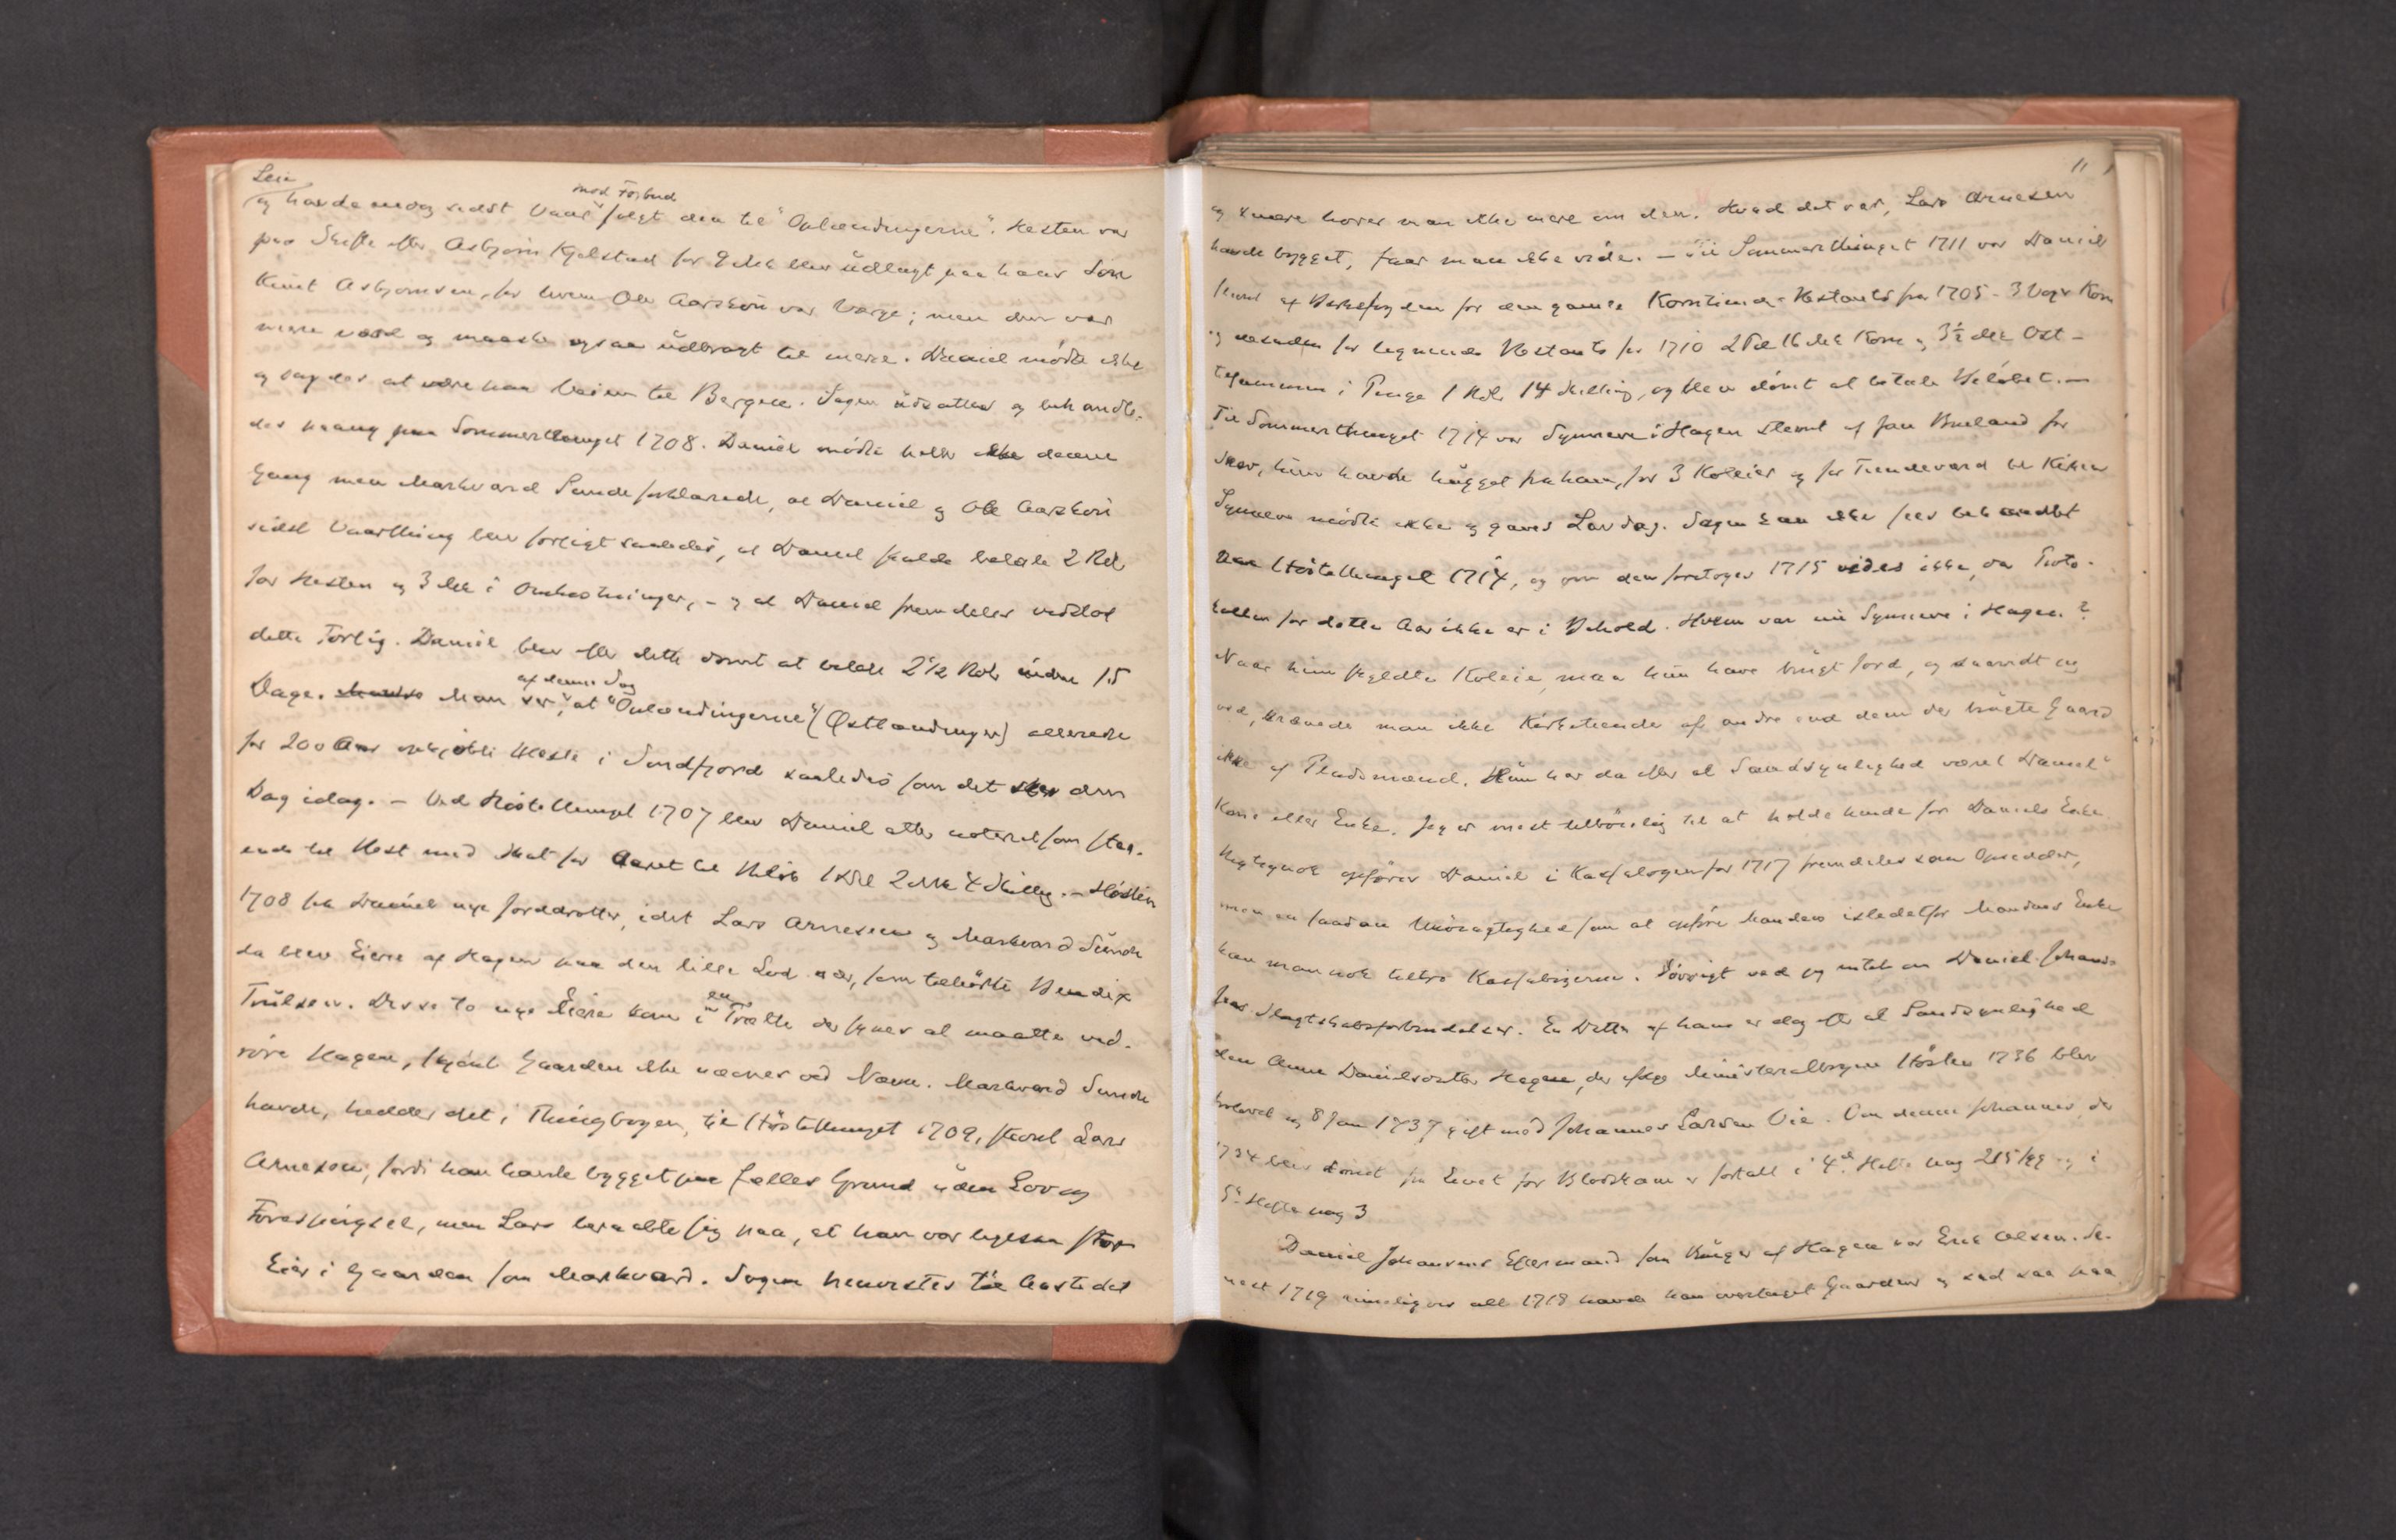 Leie
mod Forbud
og havde endog sidst Vaar solgt den til "Oplændingerne". Hesten var
paa Skifte efter Asbjørn Kjelstad for 9 Mrk blev üdlagt paa hans Søn
Knüt Asbjørnsen, for hvem Ole Aarskøü var Værge; men den var
mere værd og maaske ogsaa üdbragt til mere. Daniel mødte ikke
og sagdes at være paa Veien til Bergen. Sagen üdsattes og behandle-
des paany paa Sommerthinget 1708. Daniel mødte heller ikke denne
Gang men Markvard Sunde forklarede, at Daniel og Ole Aarskøü
sidst Vaarthing blev forligt saaledes, at Daniel skulde betale 2 Rdl
for Hesten og 3 Mrk i Omkostninger, - og at Daniel fremdeles vedstod
dette Forlig. Daniel blev efter dette dømt at betale 2 1/2 Rdl inden 15
af denne Sag
Dage. Man ser, at "Oplændingerne" (Østlændinger) allerede
for 200 Aar opkjøbte Heste i Søndfjord saaledes som det sker den
Dag idag. - Ved Høstethinget 1707 blev Daniel atter noteret som staa-
ende til Rest med Skat for Aaret til Beløb 1 Rdl 2 Mrk 4 Skilling. - Høsten
1708 fik Daniel nye Jorddrotter, idet Lars Arnesen og Markvard Sünde
da blev Eiere af Hagen paa den lille Lod nær, som tilhørte Bendix
en
Trülsen. Disse to nye Eiere kom i Trætte der synes at maatte ved-
røre Hagen, skjønt Gaarden ikke nævnes ved Navn. Markvard Sunde
havde, hedder det i Thingbogen, til Høstethinget 1709, stevnt Lars
Arnesen, fordi han havde bygget paa fælles Grund üden Lov og
Forespørgsel, men Lars beraabte sig paa, at han var ligesaa stor
Eier i Gaarden som Markvard. Sagen henvistes til Aastedet
11
og senere hører man ikke mere om den. Hvad det var, Lars Arnesen
havde bygget, faar man ikke vide. - Til Sommerthinget 1711 var Daniel
stevnt af for den gamle Korntiende-Restants fra 1705 - 3 Voger Korn
og desuden for lignende Restants for 1710 2 Pd 16 Mrk Korn og 3 1/2 Mrk Ost -
tilsammen i Penge 1 Rdl 14 Skilling, og blev dømt at betale Beløbet. -
Til Sommerthinget 1714 var Synneve i Hagen stevnt af Jan Bueland for
Skov, hün havde hügget fra ham, for 3 Koleier og for Tiendeværd til Kirken
Synneve mødte ikke og gaves Lavdag. Sagen kan ikke sees behandlet
paa Høstethinget 1714, og om den foretoges 1715 vides ikke, da Proto-
kollen for dette Aar ikke er i Behold. Hvem var nu Synneve i Hagen?
Naar hün skyldte Koleie, maa hün have brügt Jord, og saavidt jeg
ved, krævede man ikke Kirketiende af andre end dem der brügte Gaard
ikke af Pladsmænd. Hün har da efter al Sandsynlighed været Daniels
Kone eller Enke. Jeg er mest tilbøielig til at holde hende for Daniels Enke
Rigtignok opføres Daniel i for 1717 fremdeles som Opsidder,
men en saadan Unøiagtighed som at opføre Manden istedetfor Mandens Enke
kan man nok tiltro. Forøvrigt ved jeg intet om Daniel Johans-
sens Slægtskabsforbindelser. En Datter af ham er dog efter al Sandsynlighed
den Anne Danielsdatter Hagen, der ifølge Ministerialbogen Høsten 1736 blev
trolovet og 8 Jan 1737 gift med Johannes Larsen Vie. Om denne Johannes, der
1734 blev dømt fra Livet for Blodskam er fortalt i 4de Hefte pag 215 fgg og i
5te Hefte pag 3
Daniel Johansens Eftermand som Brüger af Hagen var Erik Olsen. Se-
nest 1719 rimeligvis alt 1718 havde han overtaget Gaarden og sad saa paa